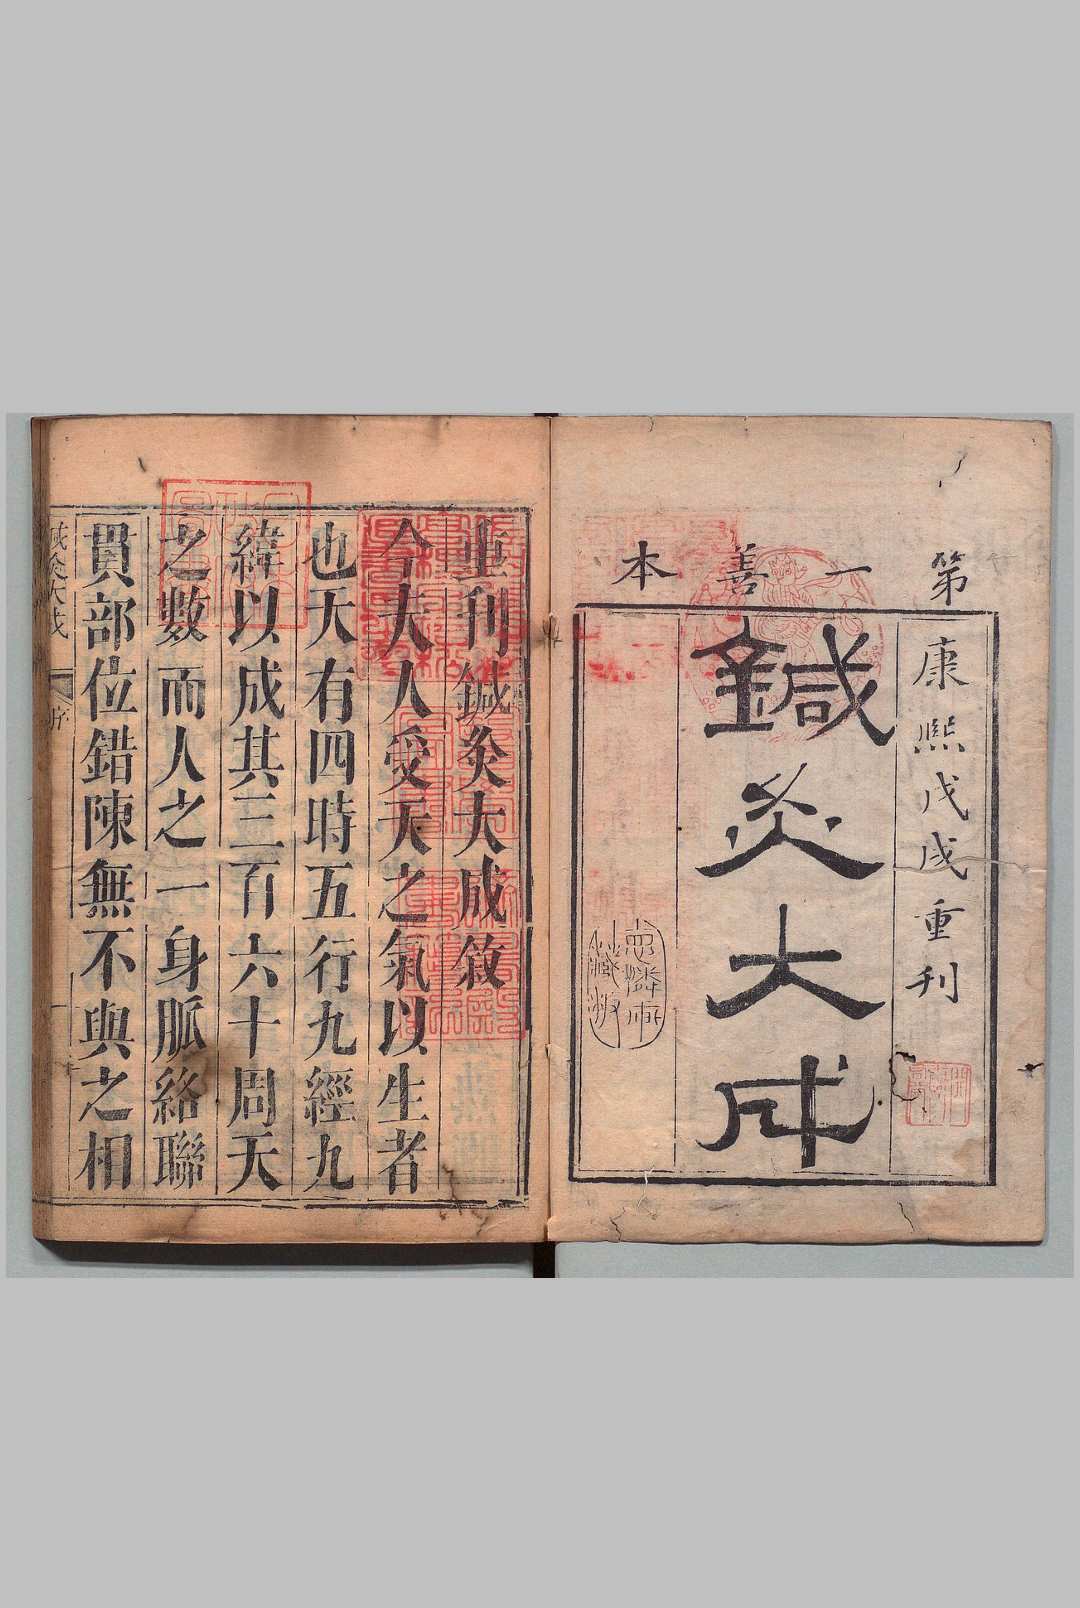 第一善本
康熙戊戌重刊
鍼灸大成
重刊鍼灸大成敘
今夫人受天之氣以生者
也天有四時五行九經九
緯以成其三百六十周天
之數而人之一身脈絡聯
貫部位錯陳無不與之相
鍼灸大成
序